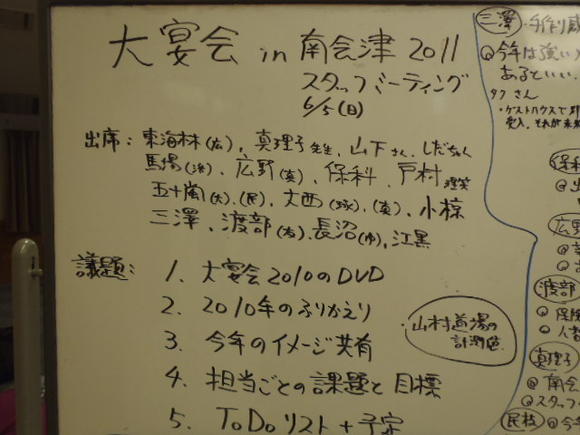 大宴会 in 南会津 2011
スタッフミーティング
6/5(日)
出席：東海林(広)、真理子先生、山下さん、しだちゃん
馬場(浩)、広野(真)、保科、戸村理笑
五十嵐(大)、(民)、大西(琢)、(真)、小椋
三澤、渡部(右)、長沼(ゆ)、江黒
議題：1. 大宴会2010のDVD
2. 2010年のふりかえり
3. 今年のイメージ共有
4. 担当ごとの課題と目標
5. ToDoリスト+予定
山村道場の
計測値
三澤・手作り感
今年は強い
あるといい
タクさん
・ゲストハウスで
受入、それが
保科
広野
渡部
保険
真理子
南会
スタッフ
民枝